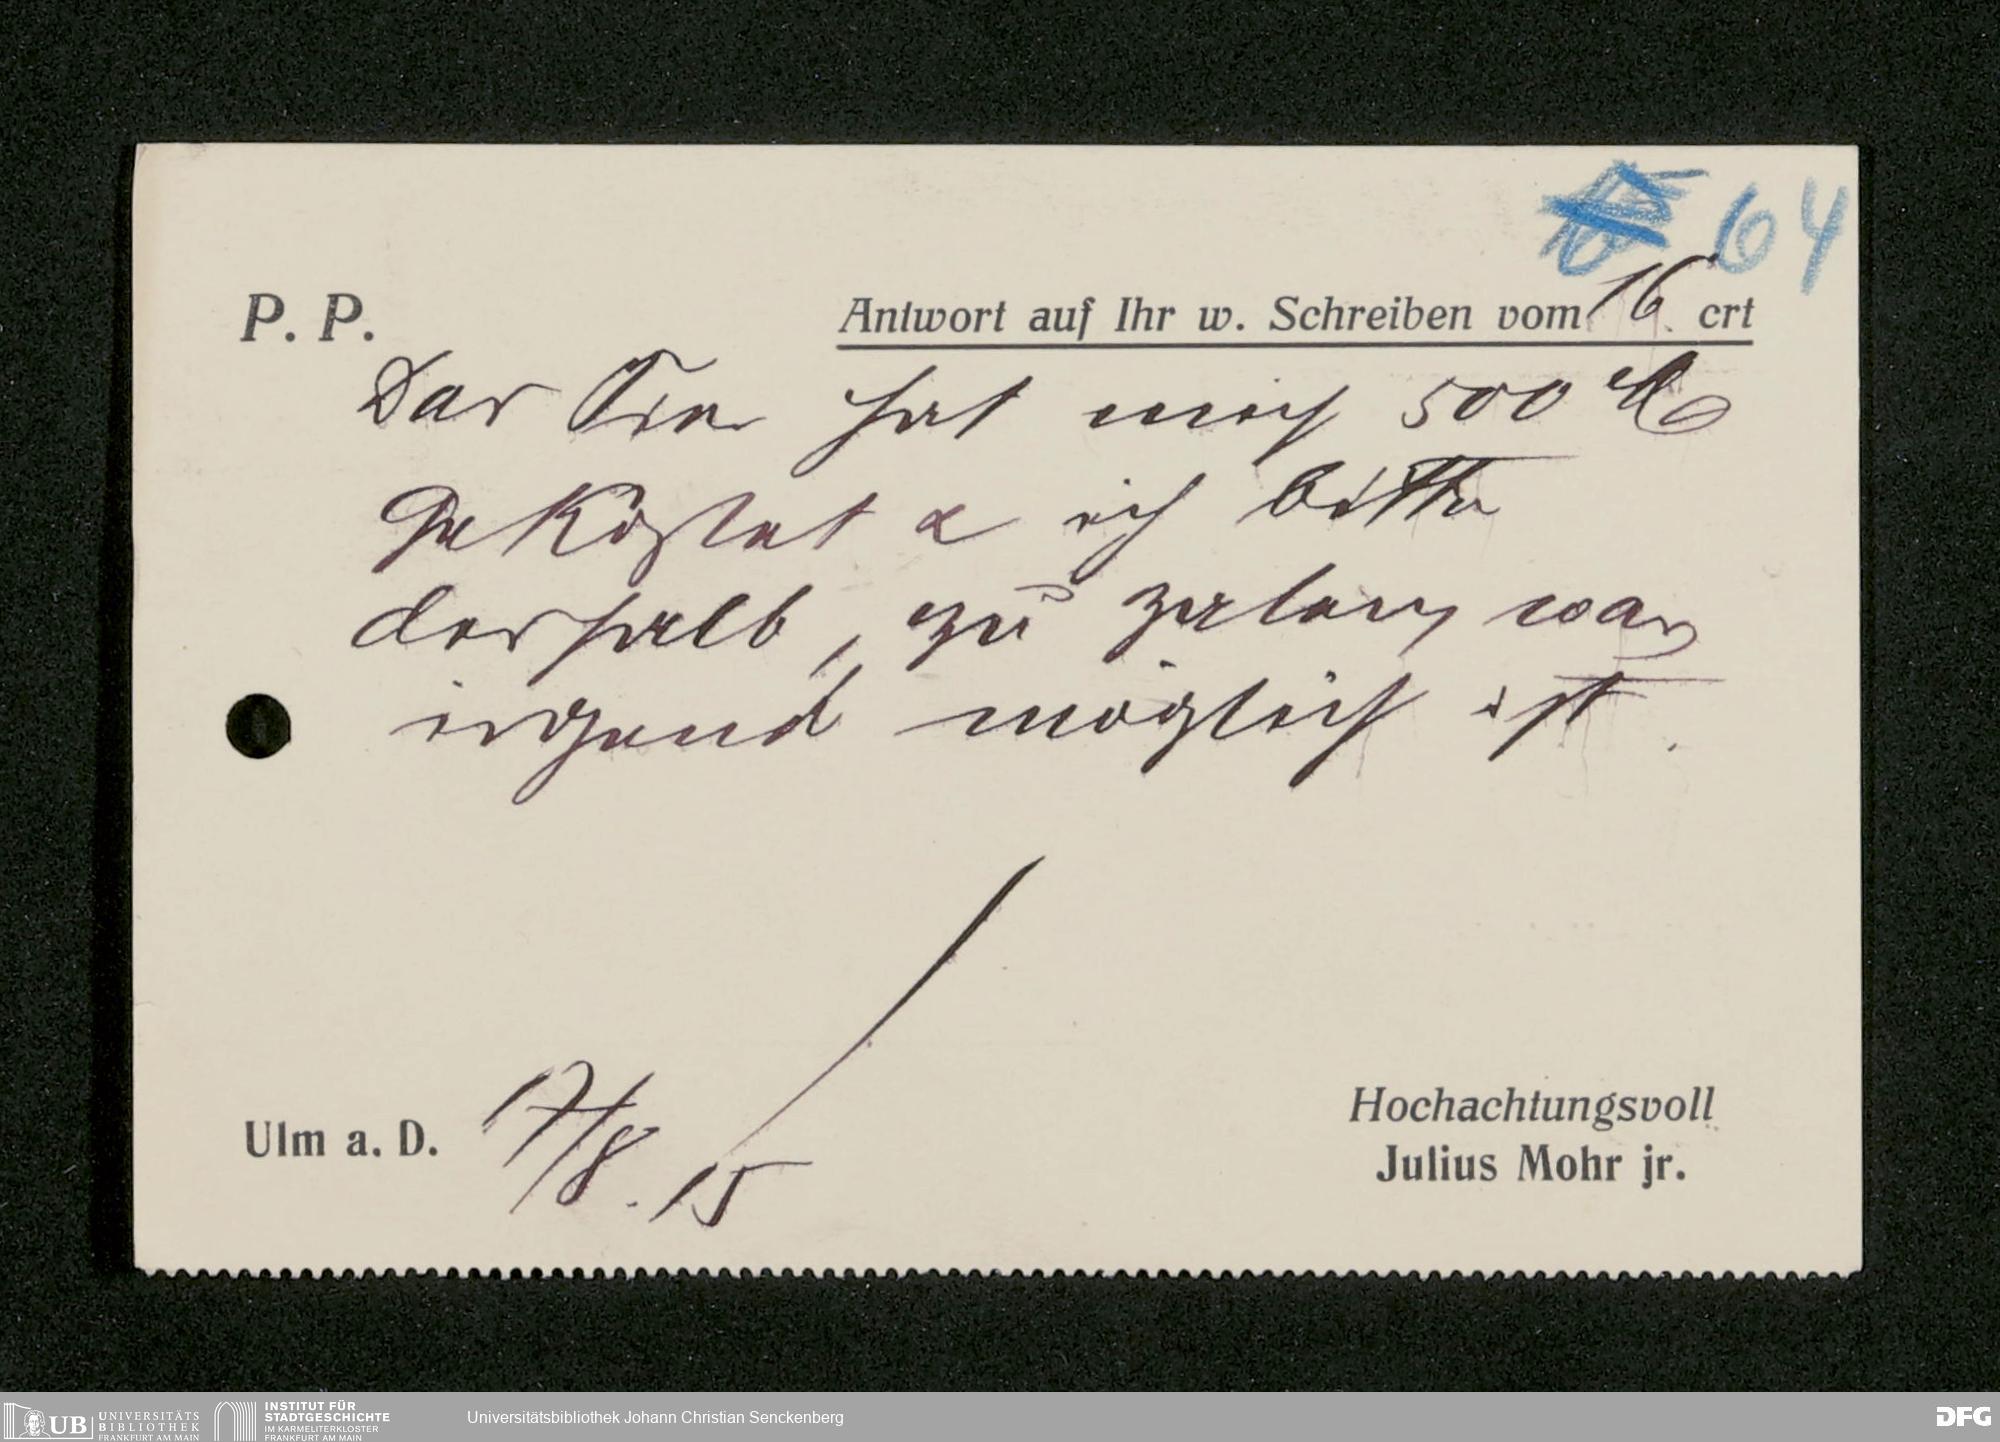 64
P. P.
Antwort auf Ihr w. Schreiben vom 16 crt
Das Tier hat mich 500 M
gekostet & ich bitte
deshalb, zu zalen, was
irgend möglich ist.
Ulm a. D. 17/8. 15
Hochachtungsvoll
Julius Mohr jr.
UB UNIVERSITÄTS BIBLIOTHEK FRANKFURT AM MAIN
INSTITUT FÜR STADTGESCHICHTE IM KARMELITERKLOSTER FRANKFURT AM MAIN
Universitätsbibliothek Johann Christian Senckenberg
DFG